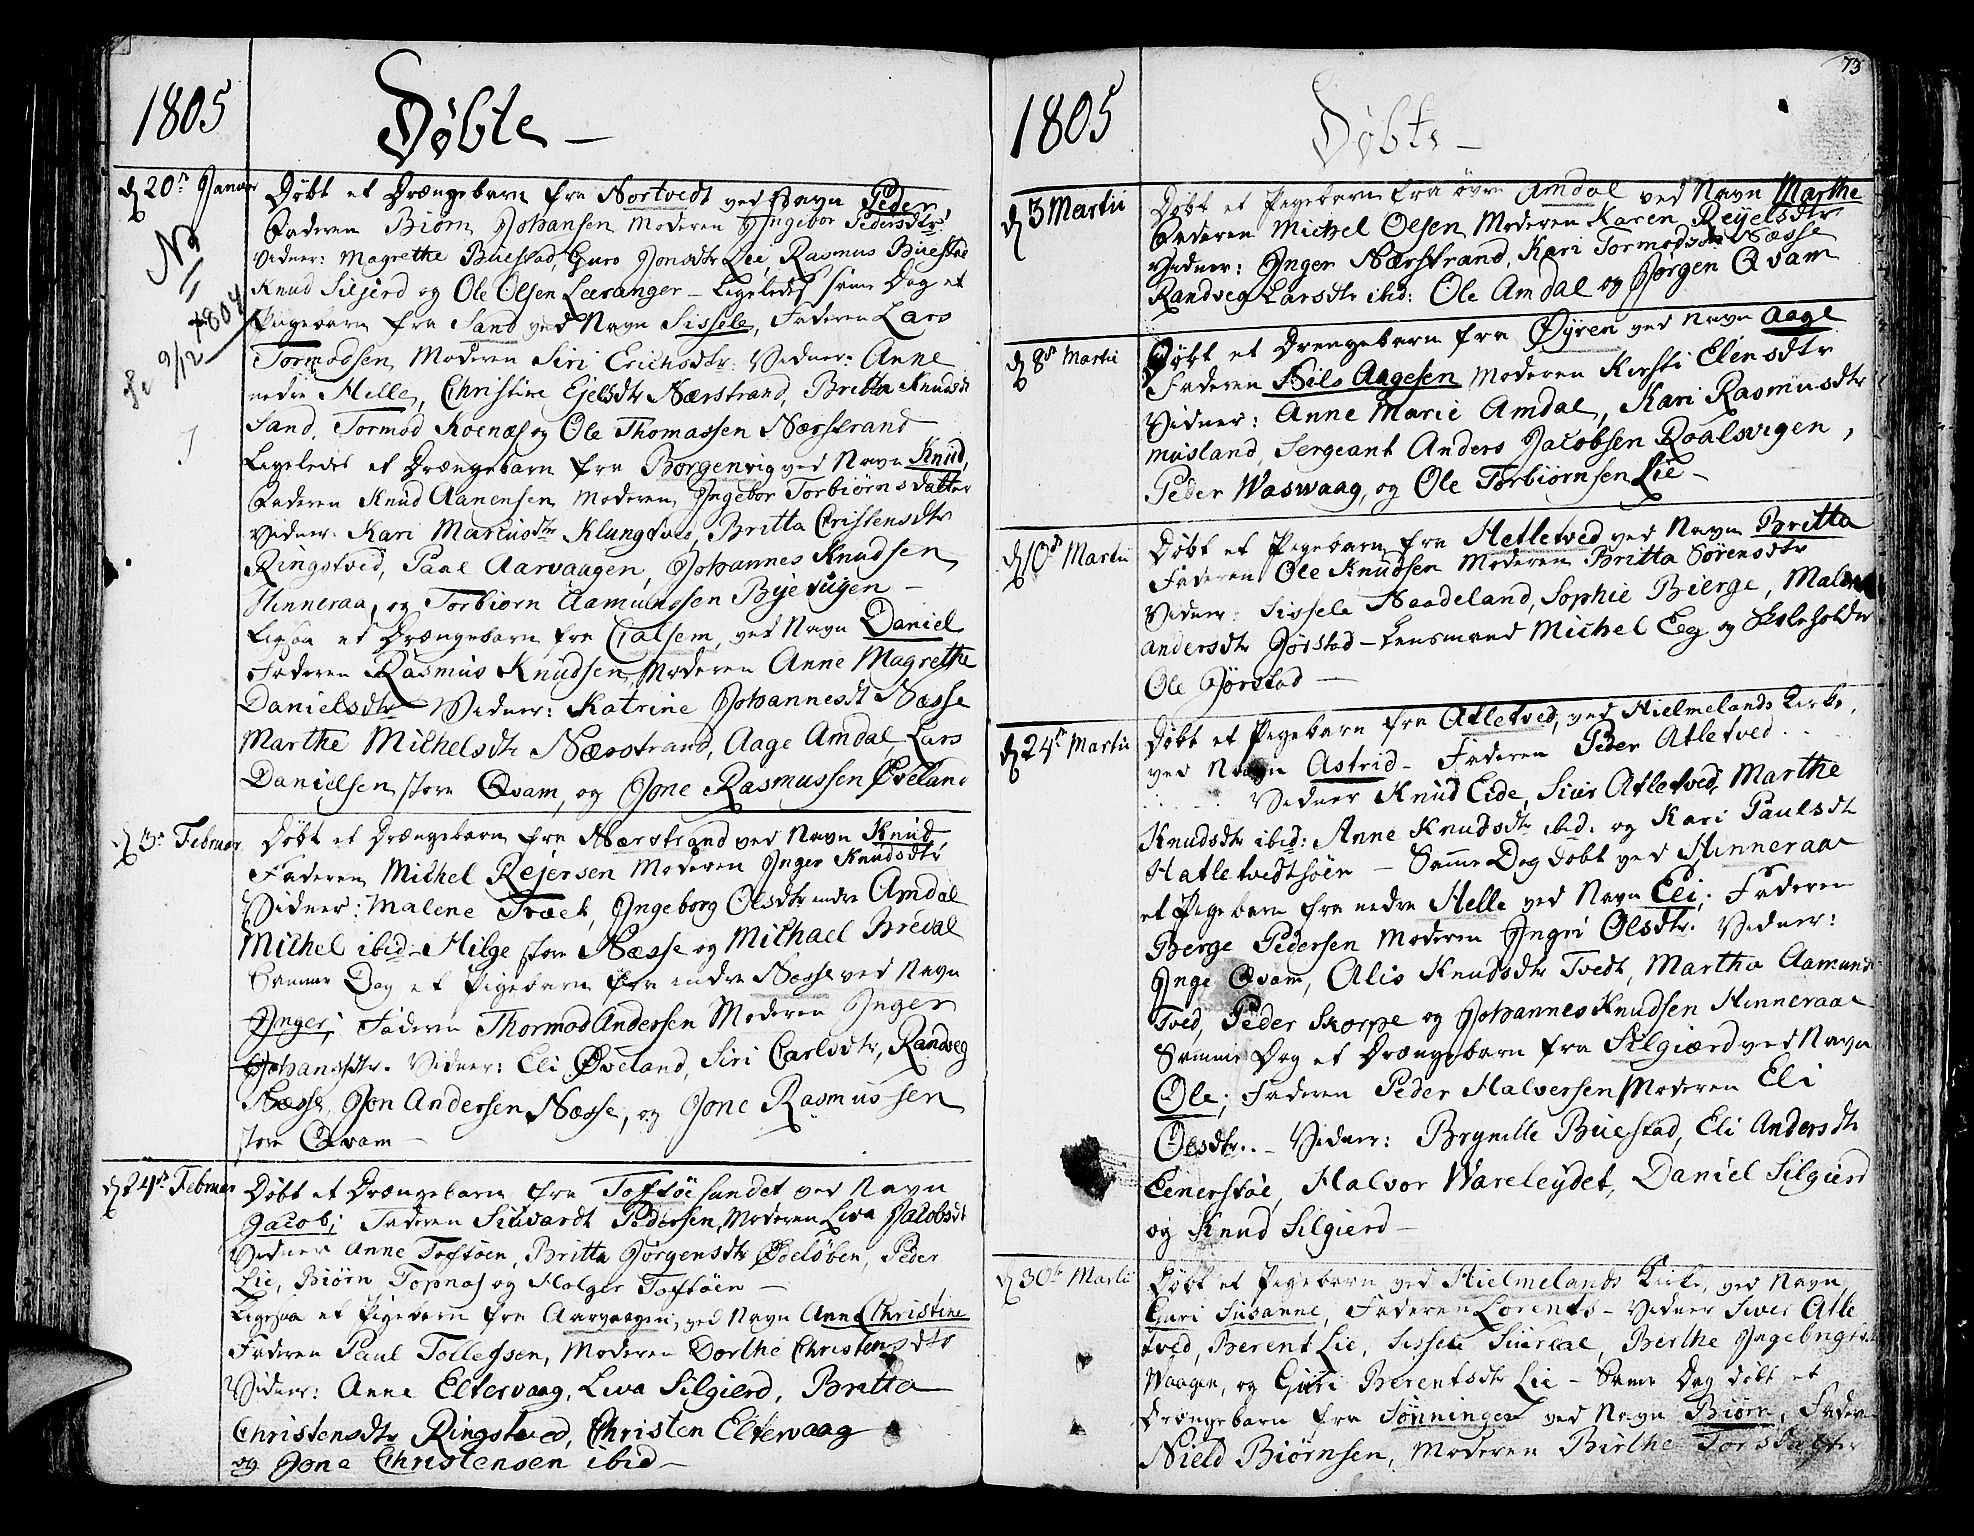 1805
Døbte —
d 20de Januar
Døbt et Drængebarn fra Nortvedt ved Navn Peder
Faderen Biørn Johansen Moderen Ingebor Pedersdtr
Vidner: Magrethe Buestad, Guro Jonsdtr Lie, Rasmus Buestad
Knud Siljerd og Ole Olsen Leeranger — Ligeledes samme Dag et
NB
1804
Se 9/12
Pigebarn fra Sand ved Navn Sissele, Faderen Lars
Tormodsen, Moderen Siri Erichsdtr. Vidner: Anne
nedre Helle, Christine Ejelsdtr Nærstrand, Britta Knudsdt
Sand, Tormod Koenæs og Ole Thomassen Nærstrand
Ligeledes et Drængebarn fra Borgenvig ved Navn Knud,
Faderen Knud Aanensen Moderen Ingebor Torbiørnsdatter
Vidner: Kari Martiusdtr Klungtvet, Britta Cristensdtr
Ringstved, Paul Aarvaagen, Johannes Knudsen
Hinneraa, og Torbiørn Aamundsen Byevigen —
Ligsaa et Drængebarn fra Galsem, ved Navn Daniel
Faderen Rasmus Knudsen, Moderen Anne Magrethe
Danielsdtr Vidner: Katrine Johannesdt Næsse
Marthe Michelsdtr Nærstrand, Aage Amdal, Lars
Danielsen store Qvam, og Jone Rasmussen Øveland
d 3de Februar
Døbt et Drængebarn fra Nærstrand ved Navn Knud
Faderen Michel Rejersen Moderen Inger Knudsdtr
Vidner: Malene Tvæt, Ingeborg Olsdtr indre Amdal
Michel ibid — Hilge store Næsse og Michael Breval
Samme Dag et Pigebarn fra indre Næsse ved Navn
Inger; Faderen Thormod Andersen Moderen Inger
Johansdtr. Vidner: Eli Øveland, Siri Carlsdtr, Randveg
Næsse, Jon Andersen Næsse, og Jone Rasmussen
store Qvam —
d 24de Februar
Døbt et Drængebarn fra Toftøesundet ved Navn
Jacob; Faderen Siuvardt Pedersen, Moderen Liva Jacobsdt
Vidner Anne Toftøen, Britta Jørgensdtr Ødeløben, Peder
Lie, Biørn Topnæs og Holger Toftøen —
Ligesaa et Pigebarn fra Aarvaagen, ved Navn Anne Christine
Faderen Paul Tollefsen, Moderen Dorthe Christensdtr
Vidner: Anne Eltervaag, Liva Silgierd, Britta
Christensdtr Ringstved, Christen Eltervaag
og Jone Christensen ibid —
73
1805
Døbte —
d 3 Martii
Døbt et Pigebarn fra øvre Amdal ved Navn Marthe
Faderen Michel Olsen Moderen Karen Rejelsdtr
Vidner: Inger Nærstrand, Kari Tormodsdtr Næsse
Randveg Larsdtr ibid: Ole Amdal og Jørgen Qvam
d 8de Martii
Døbt et Drengebarn fra Øyren ved Navn Aage
Faderen Nils Aagesen Moderen Kirsti Elensdtr
Vidner: Anne Marie Amdal, Kari Rasmusdtr
Musland, Sergeant Anders Jacobsen Roalsvigen,
Peder Waswaag, og Ole Torbiørnsen Lie —
d 10de Martii
Døbt et Pigebarn fra Hetletved ved Navn Britta
Faderen Ole Knudsen Moderen Britta Sørensdtr
Vidner: Sissele Naadeland, Sophie Bierge, Malene
Andersdtr Jørstad — Lensmand Michel Eeg og Skoleholder
Ole Jørstad —
d 24de Martii
Døbt et Pigebarn fra Atletved, ved Hielmelands Kirke,
ved Navn Astrid — Faderen Peder Atletved
Vidner Knud Eide, Siur Atletved, Marthe
Knudsdtr ibid: Anne Knudsdtr ibid. og Kari Paulsdt
Hatletvedtsøen — Samme Dag døbt ved Hinneraae
et Pigebarn fra nedre Helle ved Navn Eli; Faderen
Berge Pedersen Moderen Ingri Olsdtr. Vidner:
Inge Qvam, Alis Knudsdtr Tvedt, Martha Aamunds
Tved, Peder Skorpe og Johannes Knudsen Hinneraae
Samme Dag et Drængebarn fra Silgierd ved Navn
Ole; Faderen Peder Halversen Moderen Eli
Olsdtr. — Vidner: Brynille Buestad, Eli Andersdtr
Eenerstøe, Halvor Wareleydet, Daniel Silgierd
og Knud Silgierd —
d 30te Martii
Døbt et Pigebarn ved Hielmelands Kirke, ved Navn
Guri Susanne, Faderen Lorents — Vidner Siver Atle
tved, Berent Lie, Sissele Siureae, Berthe Ingebrigtsdtr
Waagen, og Guri Berentsdtr Lie — Same Dag døbt et
Drængebarn fra Tønninger ved Navn Biørn, Faderen
Nield Biørnsen, Moderen Birthe Torsdatter